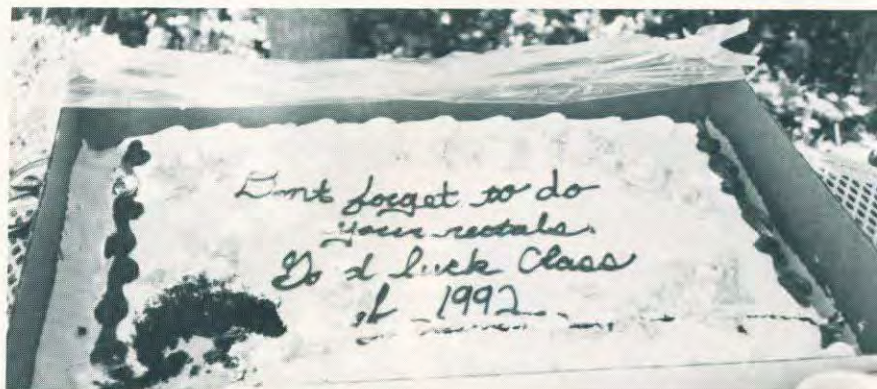 Dont forget to do
your rectals.
Good luck Class
of 1992